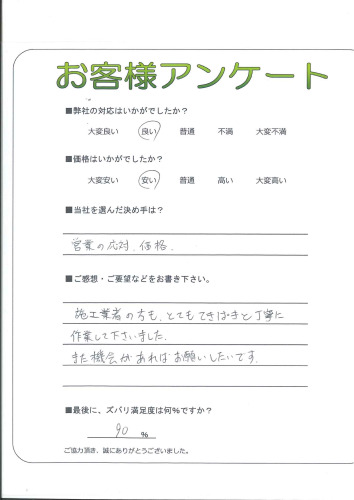 お客様アンケート
■弊社の対応はいかがでしたか？
大変良い 良い 普通 不満 大変不満
■価格はいかがでしたか？
大変安い 安い 普通 高い 大変高い
■当社を選んだ決め手は？
営業の応対、価格、
■ご感想・ご要望などをお書き下さい。
施工業者の方も、とてもてきぱきと丁寧に
作業して下さいました。
また機会があればお願いしたいです。
■最後に、ズバリ満足度は何％ですか？
90 ％
ご協力頂き、誠にありがとうございました。